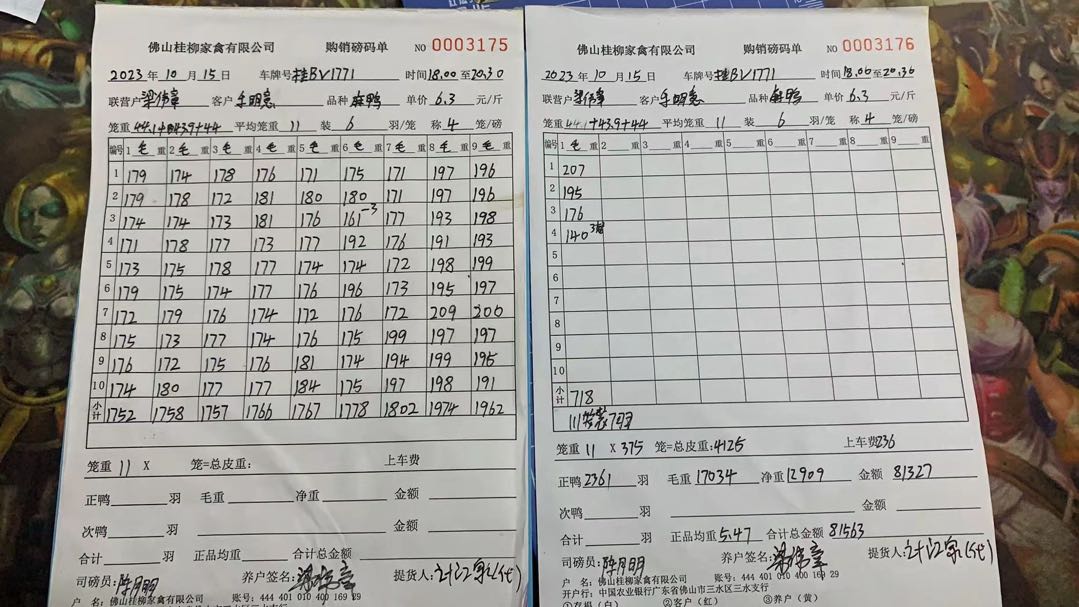 佛山桂柳家禽有限公司 购销磅码单 NO 0003175
2023年10月15日 车牌号桂BV1771 时间18.00至20.30
联营户梁伟章 客户 品种麻鸭 单价6.3元/斤
笼重44.1+43.9+44 平均笼重11 装6羽/笼 称4笼/磅
编号 1毛重 2毛重 3毛重 4毛重 5毛重 6毛重 7毛重 8毛重 9毛重
1 179 174 178 176 171 175 171 197 196
2 179 178 172 181 180 180 171 197 196
3 174 174 173 181 176 161-3 177 193 198
4 171 178 177 173 177 192 176 191 193
5 173 175 178 177 174 174 172 198 199
6 179 175 174 177 176 196 173 195 197
7 172 179 176 174 172 176 172 209 200
8 175 173 177 174 176 175 199 197 197
9 176 172 175 176 181 174 194 199 195
10 174 180 177 177 184 175 197 198 191
小计 1752 1758 1757 1766 1767 1778 1802 1974 1962
笼重11 X 笼=总皮重: 上车费
正鸭 羽 毛重 净重 金额
次鸭 羽 金额
合计 羽 正品均重 合计总金额
司磅员:陈月明 养户签名:梁伟章 提货人:
户 名:佛山桂柳家禽有限公司 账号:444 401 010 400 169 29
佛山桂柳家禽有限公司 购销磅码单 NO 0003176
2023年10月15日 车牌号桂BV1771 时间18.00至20.30
联营户梁伟章 客户 品种麻鸭 单价6.3元/斤
笼重44.1+43.9+44 平均笼重11 装6羽/笼 称4笼/磅
编号 1毛重 2 重 3 重 4 重 5 重 6 重 7 重 8 重 9 重
1 207
2 195
3 176
4 140
5
6
7
8
9
10
小计 718
笼重11 X 375笼=总皮重:4125 上车费236
正鸭2361羽 毛重17034 净重12909 金额81327
次鸭 羽 金额
合计 羽 正品均重5.47 合计总金额81563
司磅员:陈月明 养户签名:梁伟章 提货人:
户 名:佛山桂柳家禽有限公司 账号:444 401 010 400 169 29
开户行:中国农业银行广东省佛山市三水区三水支行
①存根(白) ②客户(红) ③养户(黄)